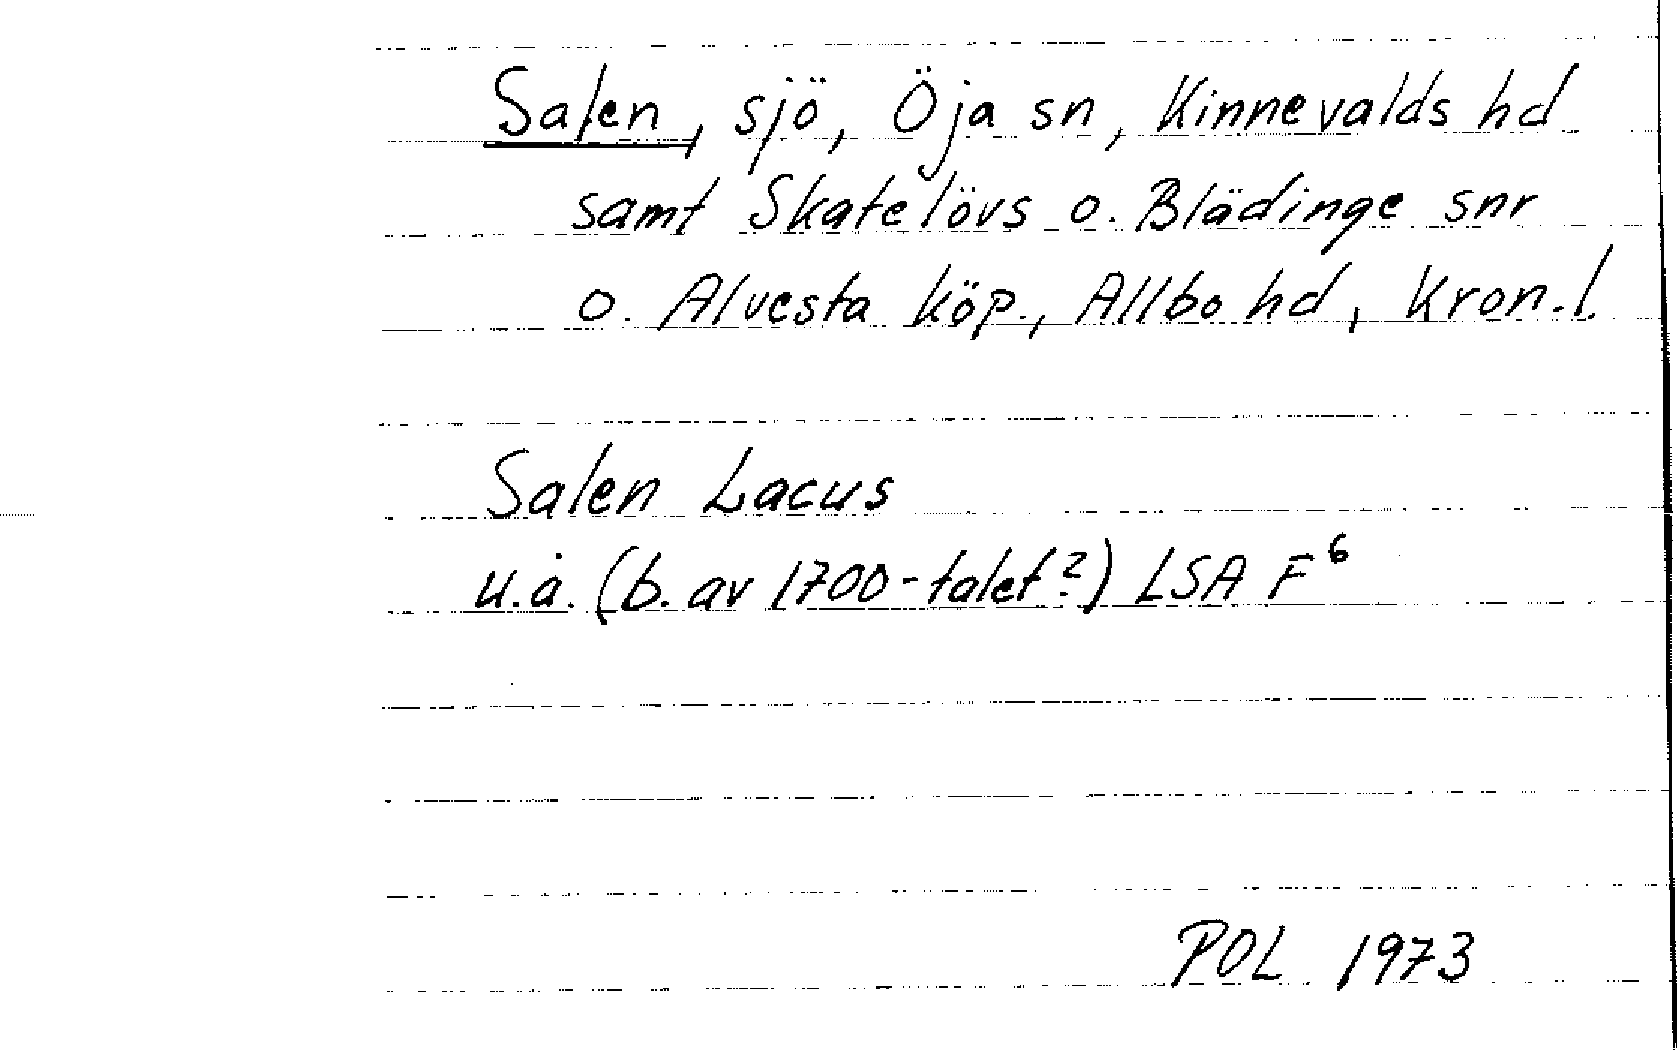 Salen, sjö, Öja sn, Kinnevalds hd
samt Skatelövs o. Blädinge snr
o. Alvesta köp., Allbo hd, Kron.l.
Salen Lacus
u.å. (b. av 1700-talet?) LSA F⁶
POL 1973